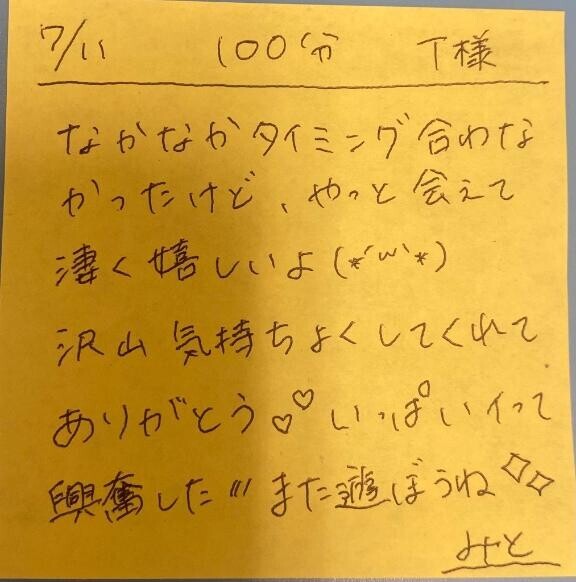 7/11 100分 T様
なかなかタイミング合わな
かったけど、やっと会えて
凄く嬉しいよ(*´ω`*)
沢山気持ちよくしてくれて
ありがとう♡♡いっぱいイって
興奮した/// また遊ぼうね✧✧
みと